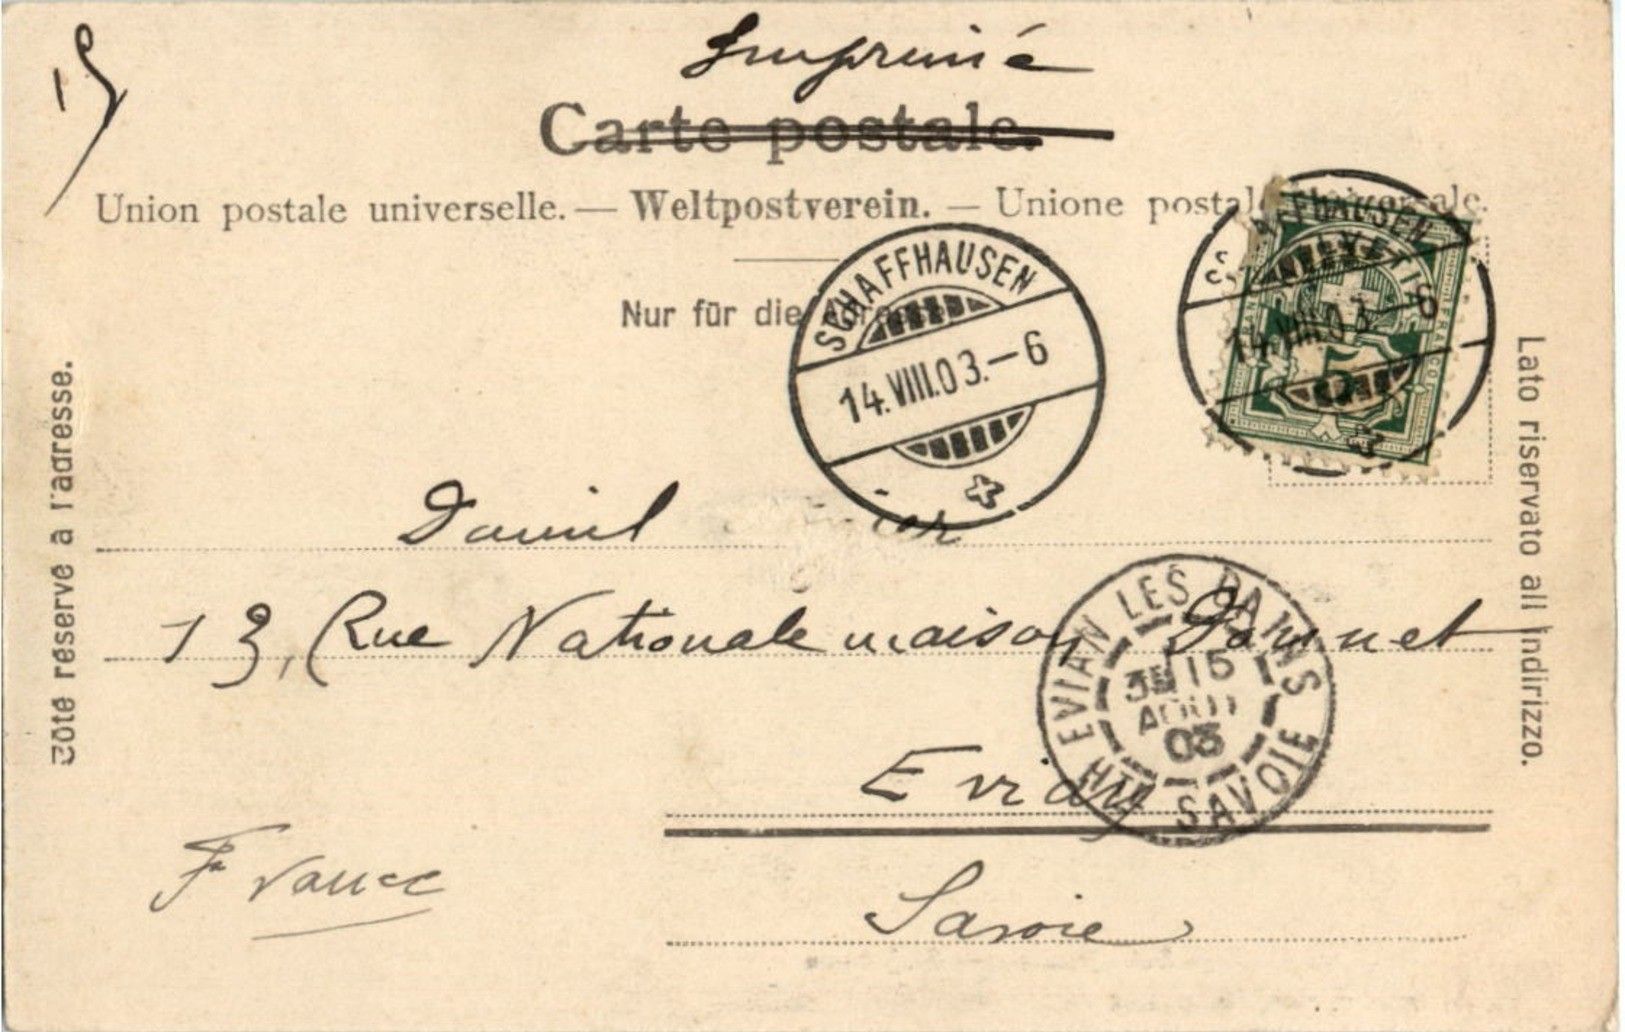 Imprimé
Carte postale.
Union postale universelle. — Weltpostverein. — Unione postale universale.
Nur für die Adresse
SCHAFFHAUSEN
14.VIII.03.–6
SCHAFFHAUSEN
14.VIII.03–6
HELVETIA
FRANCO
5
Côté réservé à l'adresse.
Lato riservato all indirizzo.
Daniel
13, Rue Nationale maison
EVIAN LES BAINS
3E 15
AOUT
03
HTE SAVOIE
Evian
France
Savoie